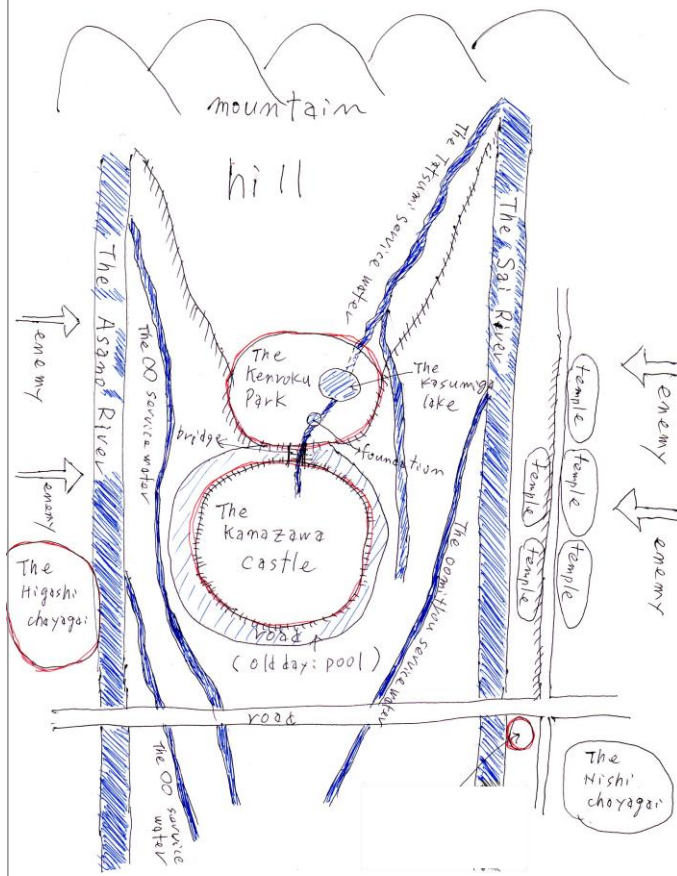 mountain
hill
The Tatsumi service water
The Sai River
The Asano River
The OO service water
enemy
enemy
The
Kenroku
Park
The
Kasumiga
lake
bridge
foundation
The
Kanazawa
castle
road
(old day: pool)
The Oomithou service water
temple
temple
temple
temple
temple
enemy
enemy
The
Higashi
chayagai
road
The OO service
water
The
Nishi
chayagai